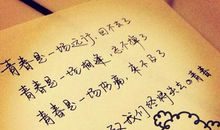 青春是一场远行，回不去了
青春是一场相逢，忘不掉了
青春是一场伤痛，来不及了
我们终将逝去的青春